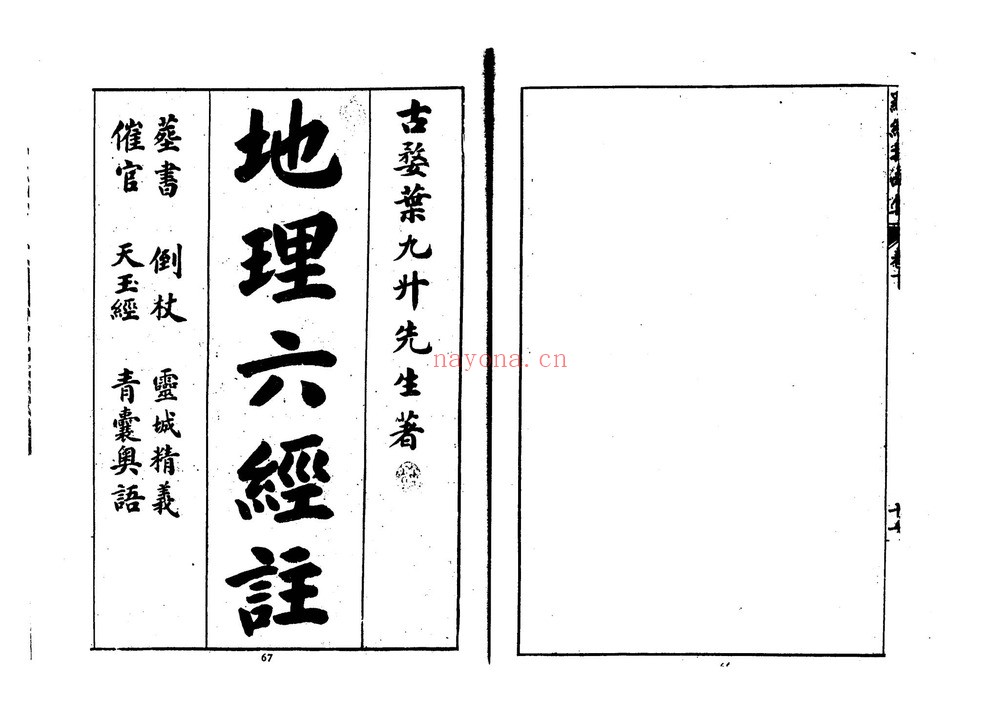 古婺葉九升先生著
地理六經註
葬書 倒杖 靈城精義
催官 天玉經 青囊奧語
nayona.cn
67